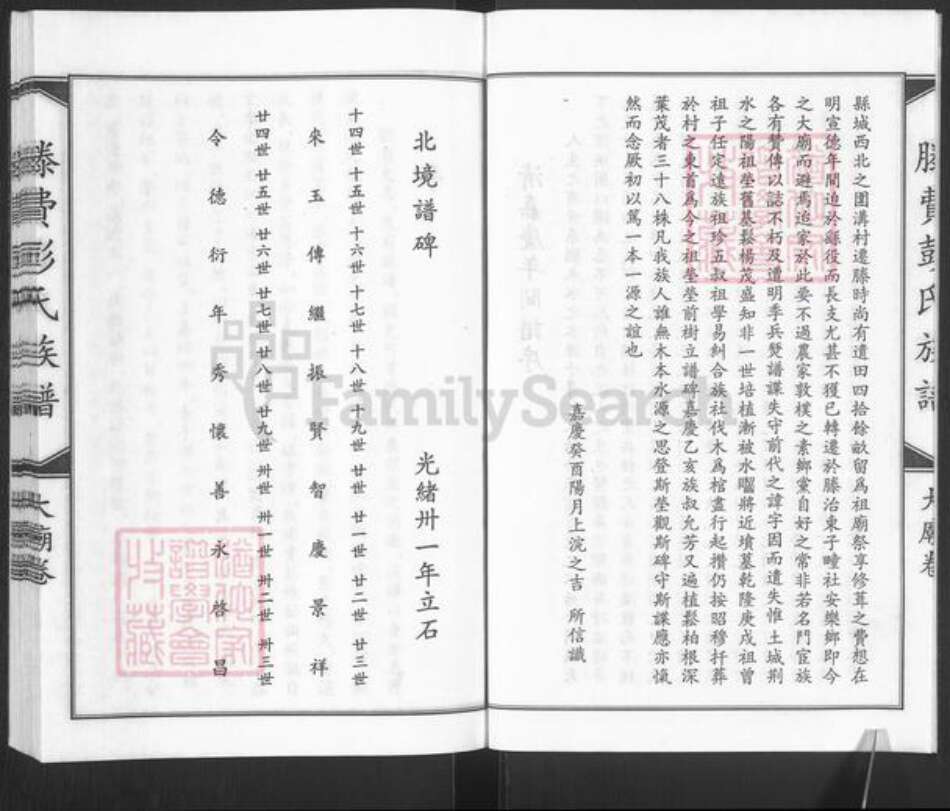 滕費彭氏族譜
大廟卷
縣城西北之團溝村遷滕時尚有遺田四拾餘畝留爲祖廟祭享修葺之費想在
明宣德年間迫於繇役而長支尤甚不獲已轉遷於滕治東子疃社安樂鄉即今
之大廟而避焉迨家於此要不過農家敦樸之素鄉黨自好之常非若名門宦族
各有贊傳以誌不朽及遭明季兵燹譜諜失守前代之諱字因而遺失惟土城荆
水之陽祖塋舊基鬆楊茂盛知非一世培植漸被水囓將近墳墓乾隆庚戌祖曾
祖子任定遠族祖珍五叔祖學易糾合族社伐木爲棺盡行起攢仍按昭穆扦葬
於村之東首爲今之祖塋塋前樹立譜碑嘉慶乙亥族叔允芳又遍植鬆柏根深
葉茂者三十八株凡我族人誰無木本水源之思登斯塋觀斯碑守斯諜應亦愾
然而念厥初以篤一本一源之誼也
嘉慶癸酉陽月上浣之吉 所信識
北境譜碑 光緒卅一年立石
十四世 十五世 十六世 十七世 十八世 十九世 廿世 廿一世 廿二世 廿三世
來 玉 傳 繼 振 賢 智 慶 景 祥
廿四世 廿五世 廿六世 廿七世 廿八世 廿九世 卅世 卅一世 卅二世 卅三世
令 德 衍 年 秀 懷 善 永 啓 昌
滕費彭氏族譜
大廟卷
FamilySearch